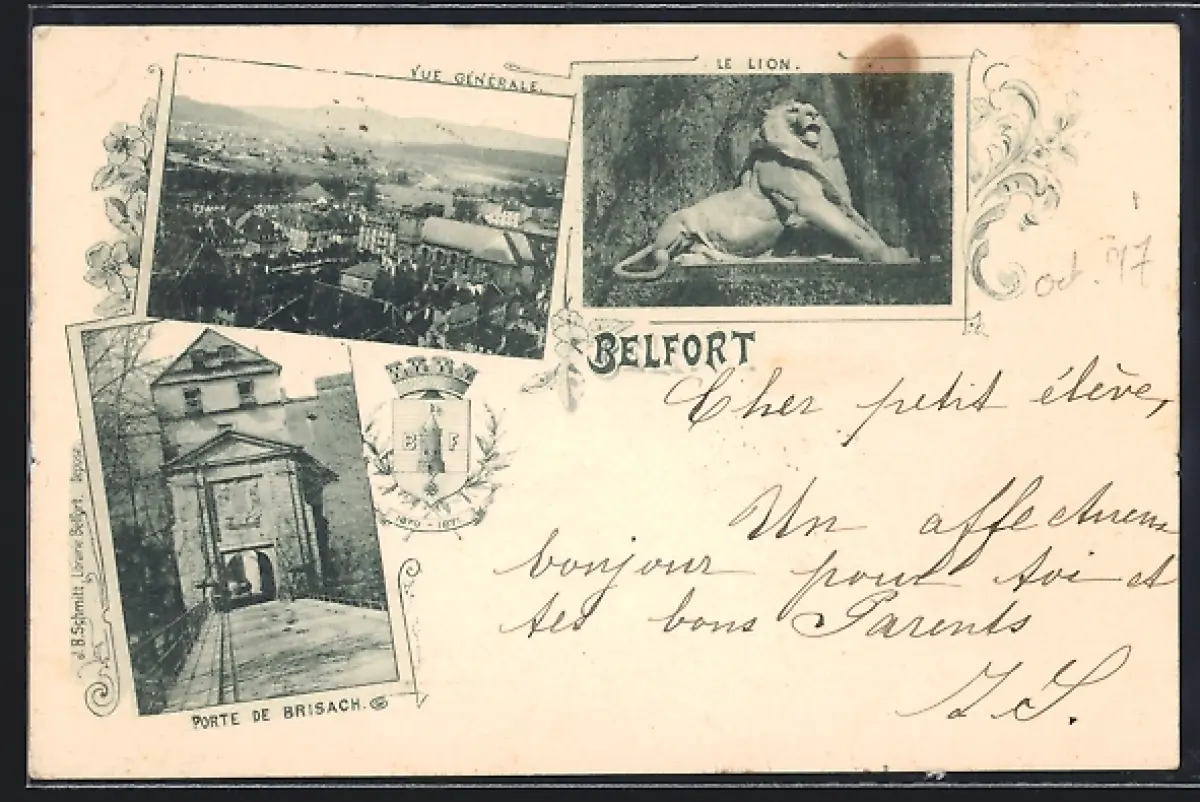 VUE GÉNÉRALE.
LE LION.
BELFORT
B F
1870-1871
PORTE DE BRISACH.
J. B. Schmitt, Librairie Belfort. Déposé
Cher petit élève,
Un affectueux
bonjour pour toi et
tes bons Parents